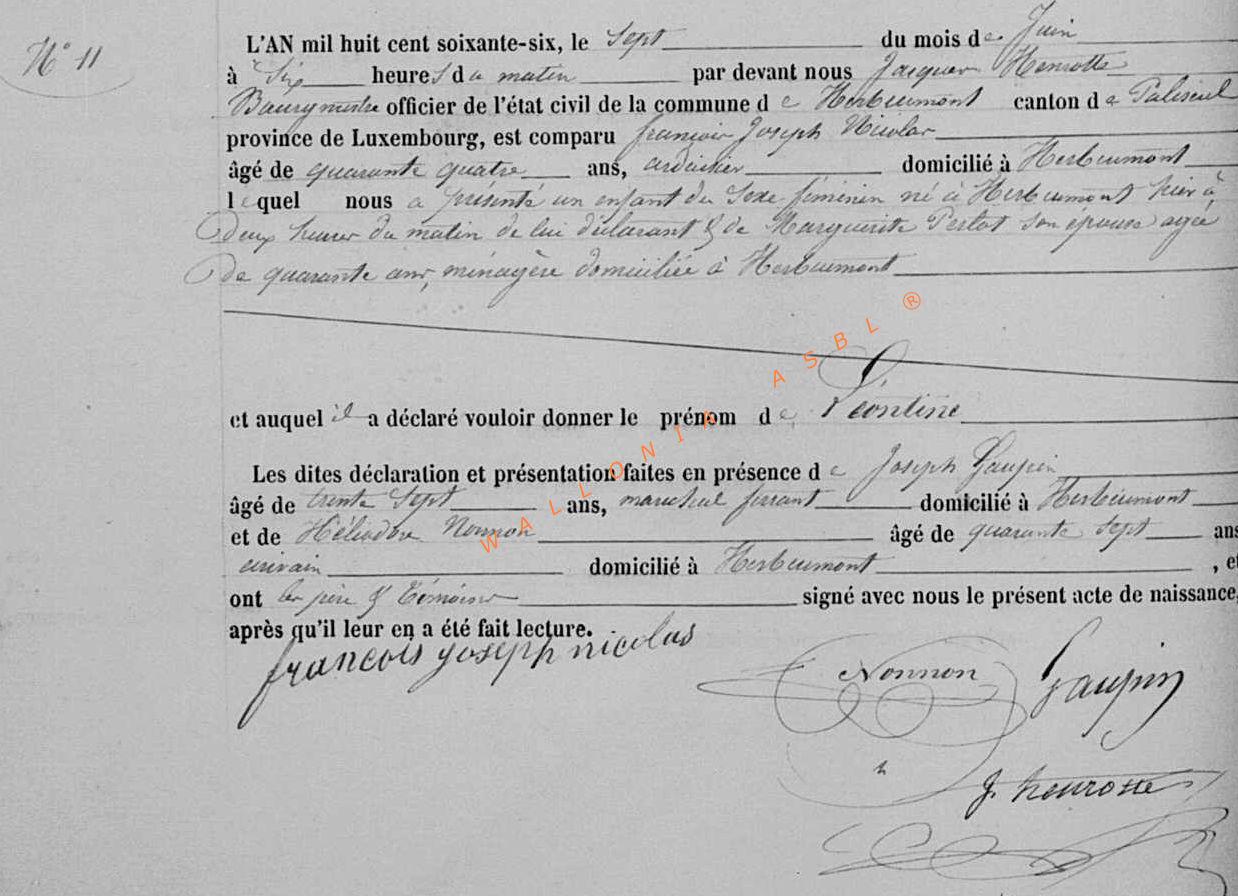 N° 11
L'AN mil huit cent soixante-six, le Sept du mois de Juin
à Six heures du matin par devant nous Jacques Henrotte
Bourgmestre officier de l'état civil de la commune de Herbeumont canton de Paliseul
province de Luxembourg, est comparu françois Joseph Nicolas
âgé de quarante quatre ans, ardoisier domicilié à Herbeumont
lequel nous a présenté un enfant du Sexe féminin né à Herbeumont hier à
deux heures du matin de lui déclarant & de Marguerite Perlot son épouse agée
de quarante ans, ménagère domiciliée à Herbeumont
et auquel il a déclaré vouloir donner le prénom de Léontine
Les dites déclaration et présentation faites en présence de Joseph Gaupin
âgé de trente Sept ans, maréchal ferrant domicilié à Herbeumont
et de Héliodore Nonnon âgé de quarante Sept ans
écrivain domicilié à Herbeumont , et
ont les père & témoins signé avec nous le présent acte de naissance,
après qu'il leur en a été fait lecture.
françois joseph nicolas
Nonnon Gaupin
J. henrotte
WALLONIA ASBL ®